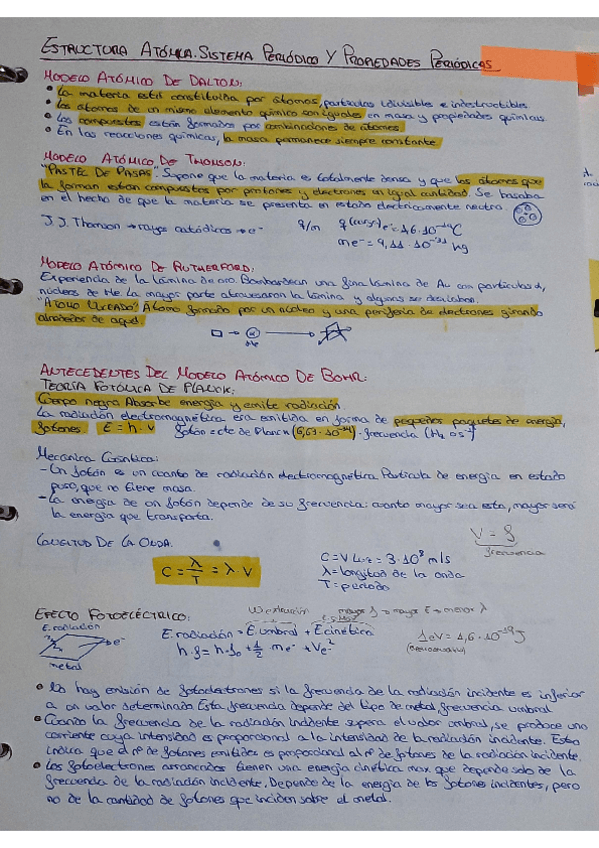 ESTRUCTURA ATÓMICA. SISTEMA PERIÓDICO Y PROPIEDADES PERIÓDICAS
MODELO ATÓMICO DE DALTON:
• La materia está constituida por átomos, partículas indivisibles e indestructibles
• Los átomos de un mismo elemento químico son iguales en masa y propiedades químicas.
• Los compuestos están formados por combinaciones de átomos
• En las reacciones químicas, la masa permanece siempre constante.
MODELO ATÓMICO DE THOMSON:
"PASTEL DE PASAS" Supone que la materia es totalmente densa y que los átomos que
la forman están compuestos por protones y electrones en igual cantidad. Se basaba
en el hecho de que la materia se presenta en estado eléctricamente neutro.
J.J. Thomson → rayos catódicos → e⁻ q/m q(carga)e⁻ = 1,6·10⁻¹⁹C
me⁻ = 9,11·10⁻³¹ kg
MODELO ATÓMICO DE RUTHERFORD:
Experiencia de la lámina de oro. Bombardean una fina lámina de Au con partículas α,
núcleos de He. La mayor parte atravesaron la lámina y algunas se desviaban.
"ÁTOMO NUCLEADO" Átomo formado por un núcleo y una periferia de electrones girando
alrededor de aquel.
ANTECEDENTES DEL MODELO ATÓMICO DE BOHR:
TEORÍA FOTÓNICA DE PLANCK:
Cuerpo negro Absorbe energía y emite radiación.
La radiación electromagnética era emitida en forma de pequeños paquetes de energía,
fotones E = h · ν fotón = cte de Planck (6,63·10⁻³⁴) · frecuencia (Hz o s⁻¹)
Mecánica Cuántica:
- Un fotón es un cuanto de radiación electromagnética. Partícula de energía en estado
puro, que no tiene masa.
- La energía de un fotón depende de su frecuencia: cuanto mayor sea esta, mayor será
la energía que transporta.
V = f
frecuencia
LONGITUD DE LA ONDA:
C = λ/T = λ V
C = V luz = 3·10⁸ m/s
λ = longitud de la onda
T = periodo
EFECTO FOTOELÉCTRICO:
W extracción mayor f = mayor E = menor λ
E. radiación
e⁻
metal
E. radiación = E. umbral + E cinética
h·f = h·f₀ + ½ me⁻ + Ve⁻²
1eV = 1,6·10⁻¹⁹J
• No hay emisión de fotoelectrones si la frecuencia de la radiación incidente es inferior
a un valor determinado Esta frecuencia depende del tipo de metal, frecuencia umbral
• Cuando la frecuencia de la radiación incidente supera el valor umbral, se produce una
corriente cuya intensidad es proporcional a la intensidad de la radiación incidente. Esto
indica que el nº de fotones emitidos es proporcional al nº de fotones de la radiación incidente.
• Los fotoelectrones arrancados tienen una energía cinética max que depende solo de la
frecuencia de la radiación incidente. Depende de la energía de los fotones incidentes, pero
no de la cantidad de fotones que inciden sobre el metal.